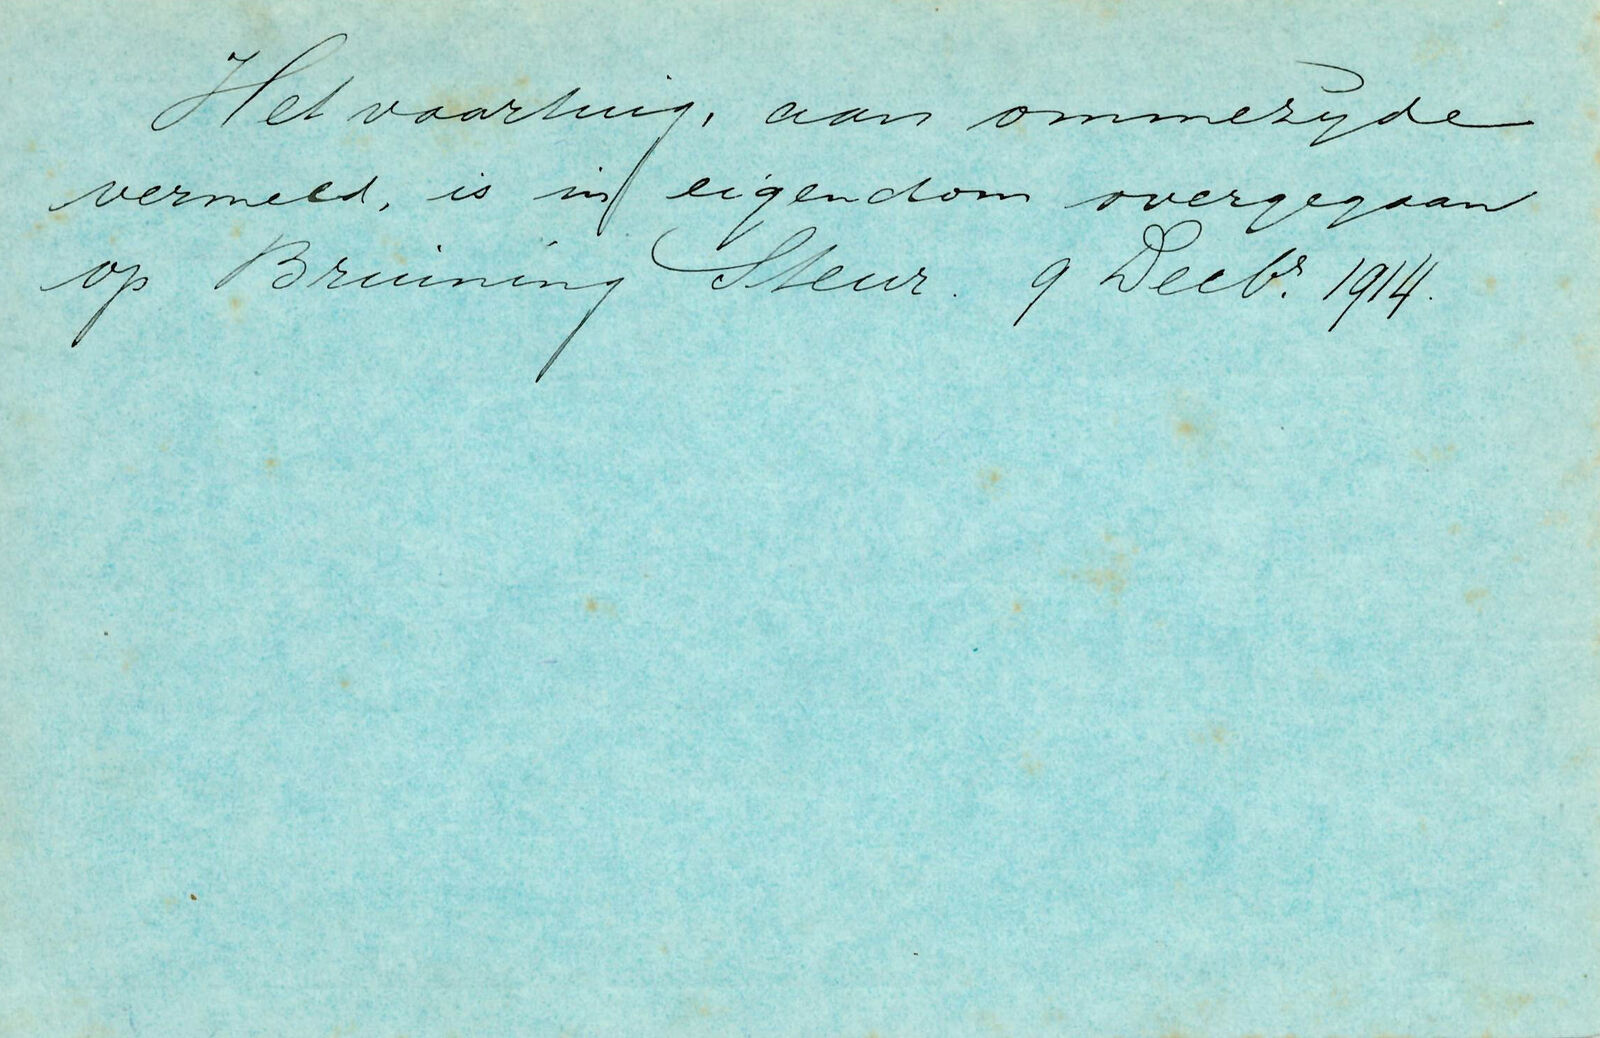 Het vaartuig, aan ommezyde
vermeld, is in eigendom overgegaan
op Bruining Steur. 9 Decbr. 1914.